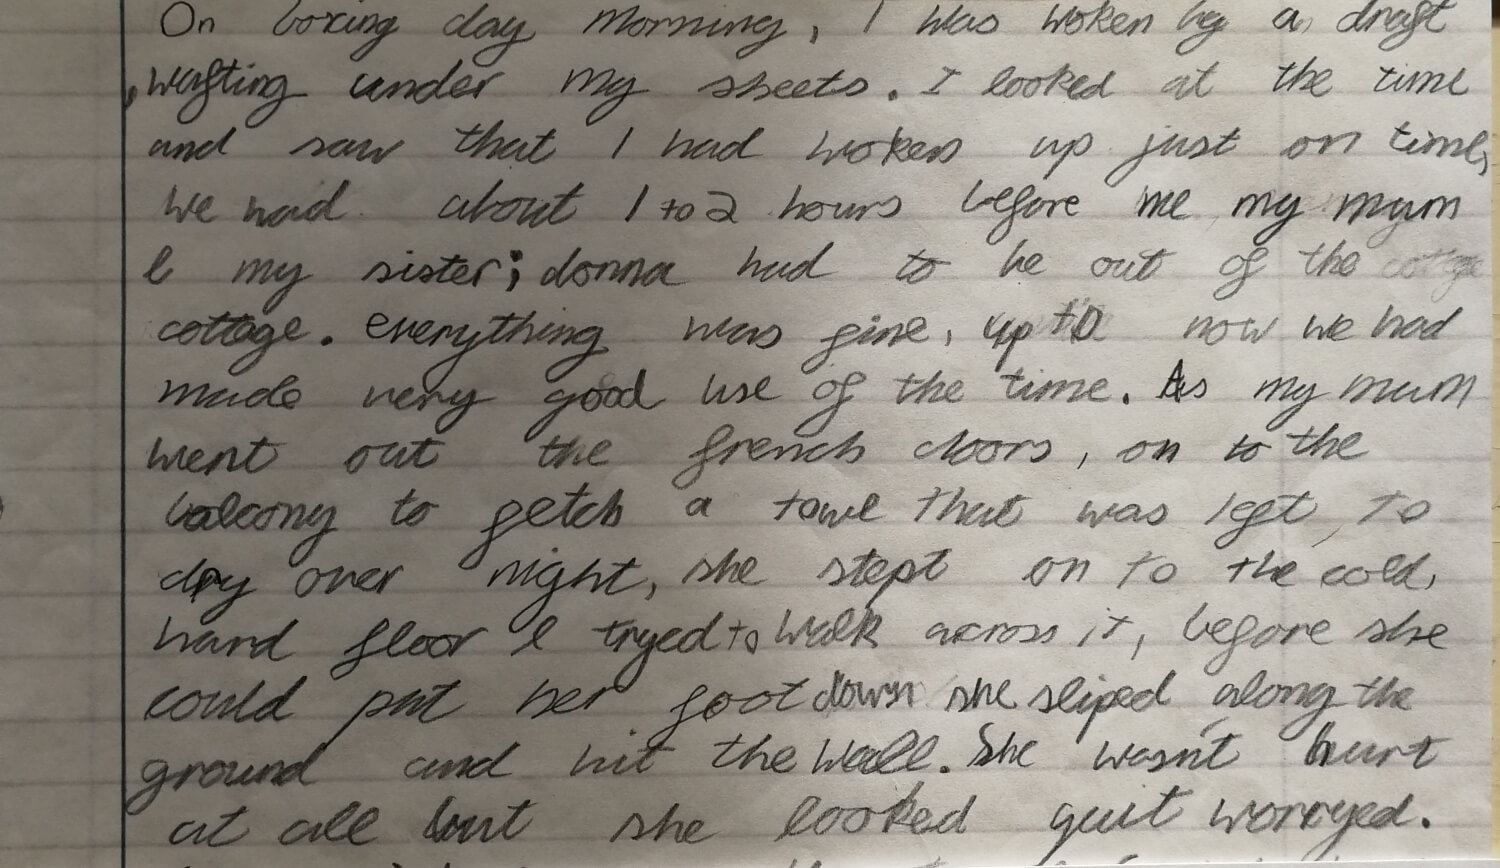 On boxing day morning, I was woken by a draft
wafting under my sheets. I looked at the time
and saw that I had woken up just on time,
We had about 1 to 2 hours before me my mum
& my sister; donna had to be out of the cottage
cottage. everything was fine, up to now we had
made very good use of the time. As my mum
went out the french doors, on to the
balcony to fetch a towl that was left, to
dry over night, she stept on to the cold,
hard floor & tryed to walk across it, before she
could put her foot down she sliped along the
ground and hit the wall. She wasn't hurt
at all but she looked quit worryed.